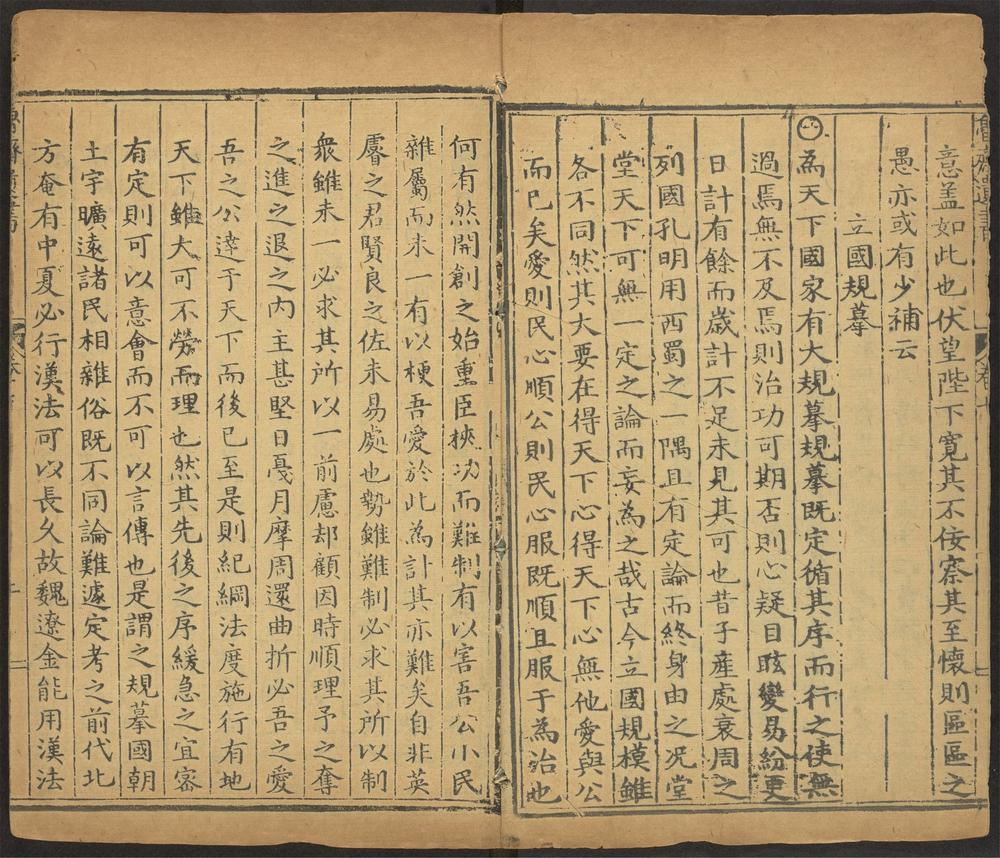 意盖如此也伏望陛下寛其不佞察其至懷則區區之
愚亦或有少補云
立國規摹
為天下國家有大規摹規摹既定循其序而行之使無
過焉無不及焉則治功可期否則心疑目眩變易紛更
日計有餘而歲計不足未見其可也昔子產處衰周之
列國孔明用西蜀之一隅且有定論而終身由之况堂
堂天下可無一定之論而妄為之哉古今立國規模雖
各不同然其大要在得天下心得天下心無他愛與公
而已矣愛則民心順公則民心服既順且服于為治也
何有然開創之始重臣挾功而難制有以害吾公小民
雜屬而未一有以梗吾愛於此為計其亦難矣自非英
睿之君賢良之佐未易處也勢雖難制必求其所以制
衆雖未一必求其所以一前慮却顧因時順理予之奪
之進之退之内主甚堅日戞月摩周還曲折必吾之愛
吾之公達于天下而後已至是則紀綱法度施行有地
天下雖大可不勞而理也然其先後之序緩急之宜密
有定則可以意會而不可以言傳也是謂之規摹國朝
土宇曠遠諸民相雜俗既不同論難遽定考之前代北
方奄有中夏必行漢法可以長久故魏遼金能用漢法